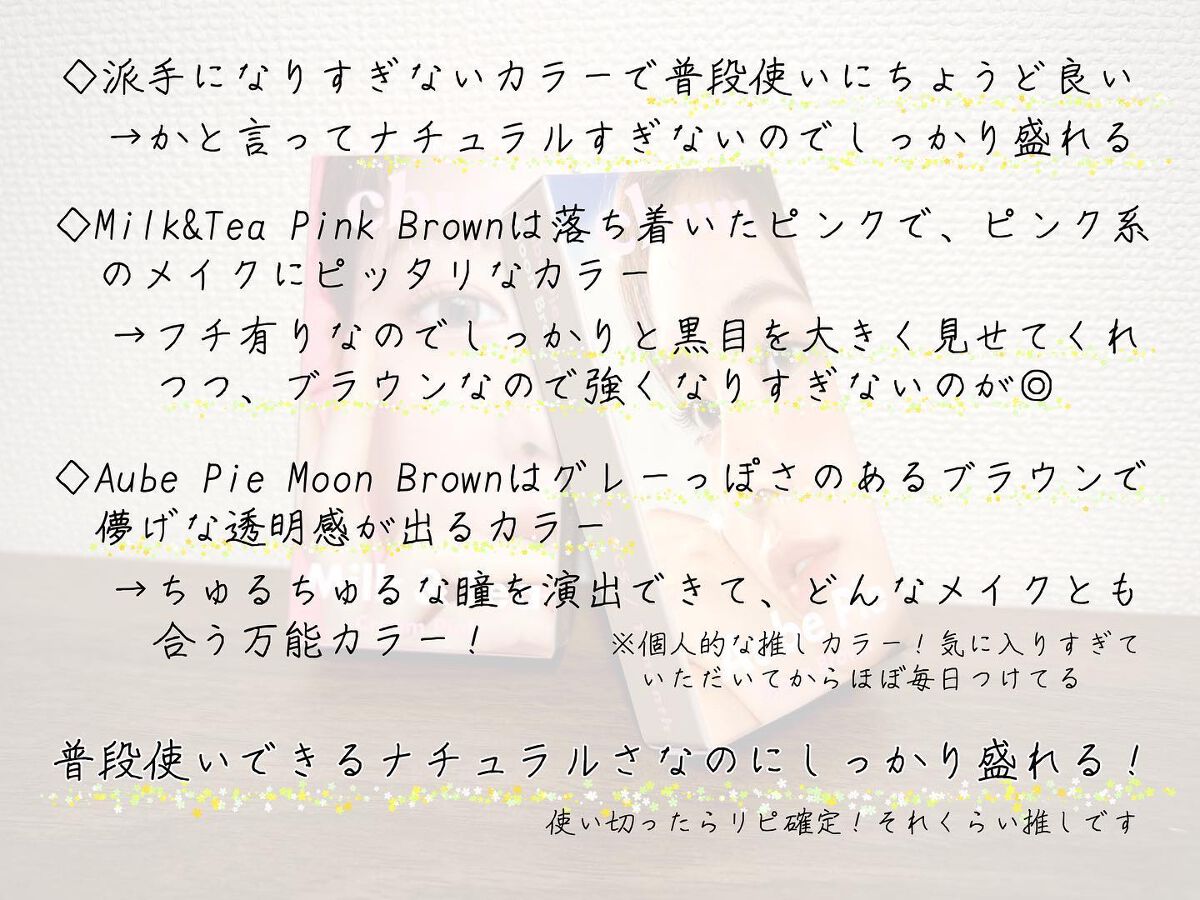 ◇派手になりすぎないカラーで普段使いにちょうど良い
→かと言ってナチュラルすぎないのでしっかり盛れる
◇Milk&Tea Pink Brownは落ち着いたピンクで、ピンク系
のメイクにピッタリなカラー
→フチ有りなのでしっかりと黒目を大きく見せてくれ
つつ、ブラウンなので強くなりすぎないのが◎
◇Aube Pie Moon Brownはグレーっぽさのあるブラウンで
儚げな透明感が出るカラー
→ちゅるちゅるな瞳を演出できて、どんなメイクとも
合う万能カラー！
※個人的な推しカラー！気に入りすぎて
いただいてからほぼ毎日つけてる
普段使いできるナチュラルさなのにしっかり盛れる！
使い切ったらリピ確定！それくらい推しです